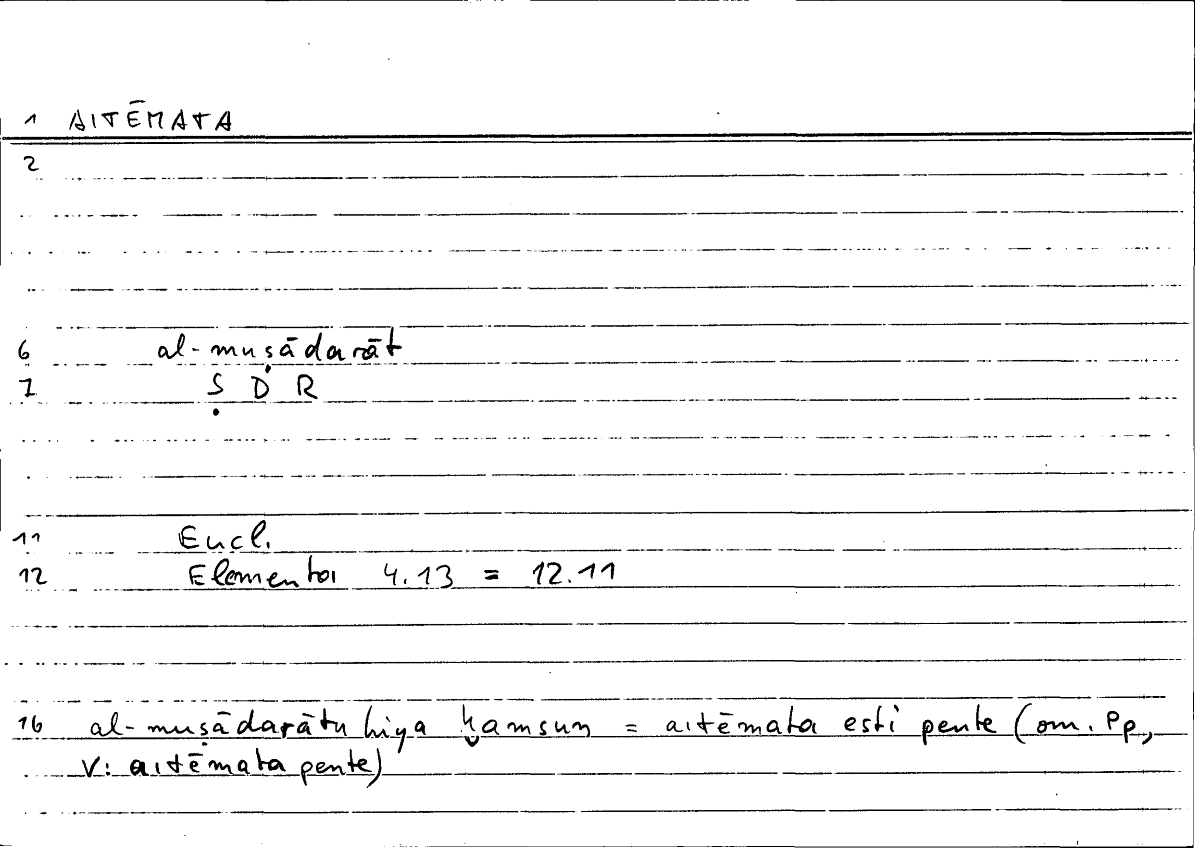 1 AITĒMATA
2
6 al-muṣādarāt
7 Ṣ D R
11 Eucl.
12 Elementa 4.13 = 12.11
16 al-muṣādarātu hiya ḫamsun = aitēmata esti pente (om. Pp,
V: aitēmata pente)